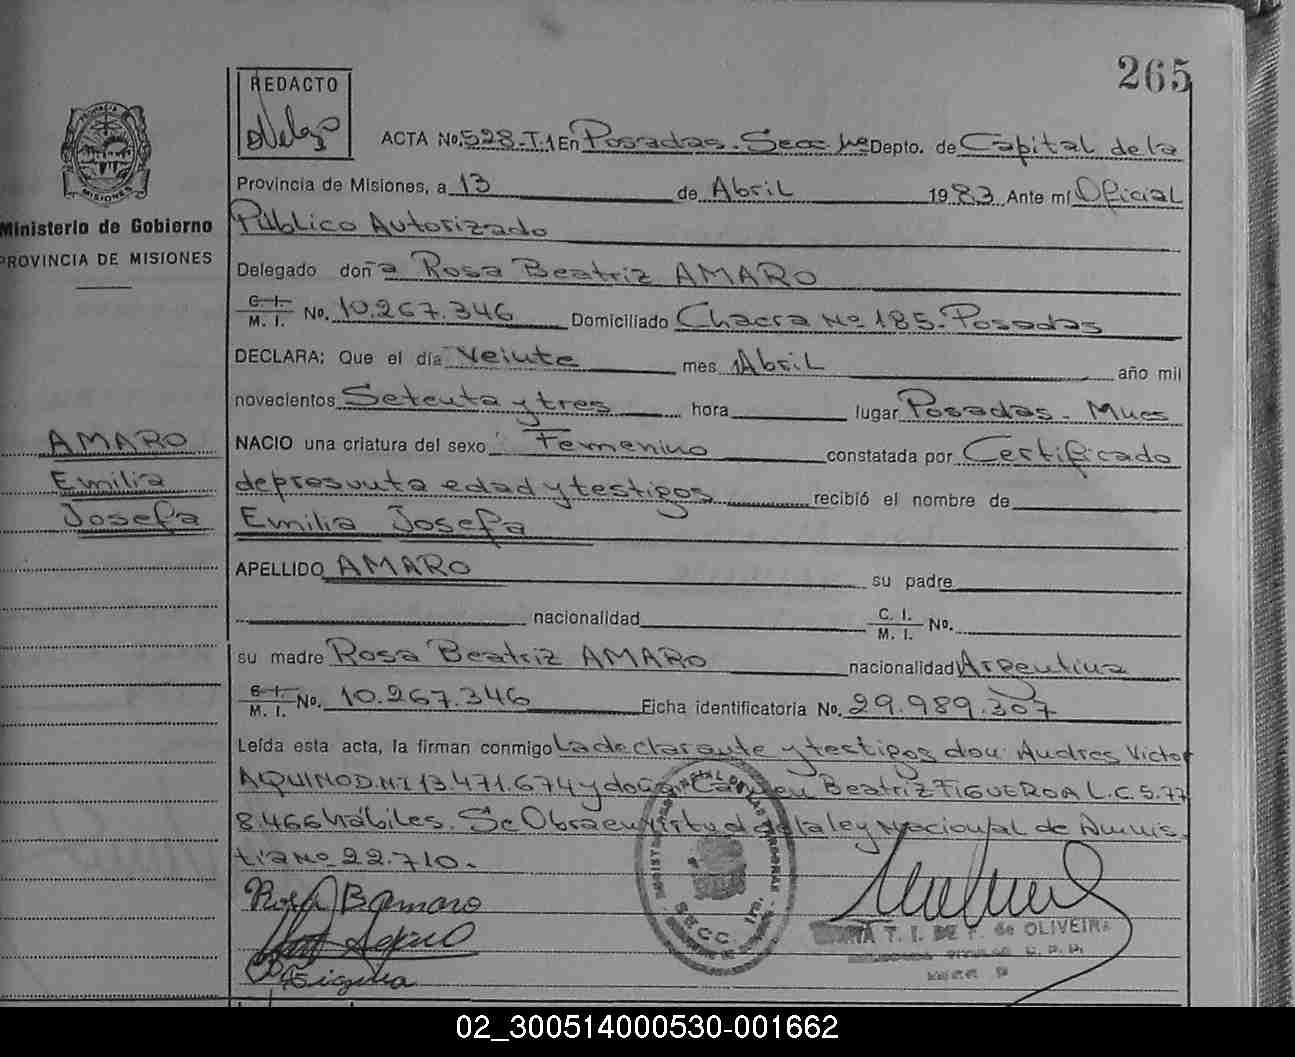 265
REDACTO
ACTA No. 528-T.1 En Posadas. Secc 1ra Depto. de Capital de la
Provincia de Misiones, a 13 de Abril 1983 Ante mí Oficial
Público Autorizado
Ministerio de Gobierno
PROVINCIA DE MISIONES
Delegado doña Rosa Beatriz AMARO
C. I. M. I. No. 10.267.346 Domiciliado Chacra Nº 185-Posadas
DECLARA: Que el día Veinte mes Abril año mil
novecientos Setenta y tres hora lugar Posadas - Mnes
NACIO una criatura del sexo Femenino constatada por Certificado
de presunta edad y testigos recibió el nombre de
AMARO
Emilia
Josefa
Emilia Josefa
APELLIDO AMARO su padre
nacionalidad C. I. M. I. No.
su madre Rosa Beatriz AMARO nacionalidad Argentina
C. I. M. I. No. 10.267.346 Ficha identificatoria No. 29.989.307
Leída esta acta, la firman conmigo La declarante y testigos don Andres Victor
AQUINO D.N.I 13.471.674 y doña Carmen Beatriz FIGUEROA L.C. 5.77
8.466 hábiles. Se Obra en virtud de la ley Nacional de Amnis
tia Nº 22.710.
Rosa B Amaro
SECC. 1ra.
T. I. DE F. de OLIVEIRA
02_300514000530-001662